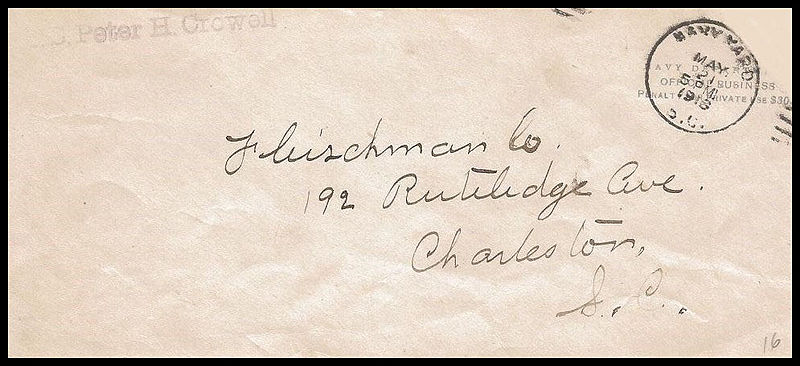 Peter H. Crowell
NAVY YARD
MAY
21
5 PM
1916
S.C.
NAVY
OFFICIAL BUSINESS
PENALTY PRIVATE USE $300
Fleischman Co.
192 Rutledge Ave.
Charleston,
S.C.,
16